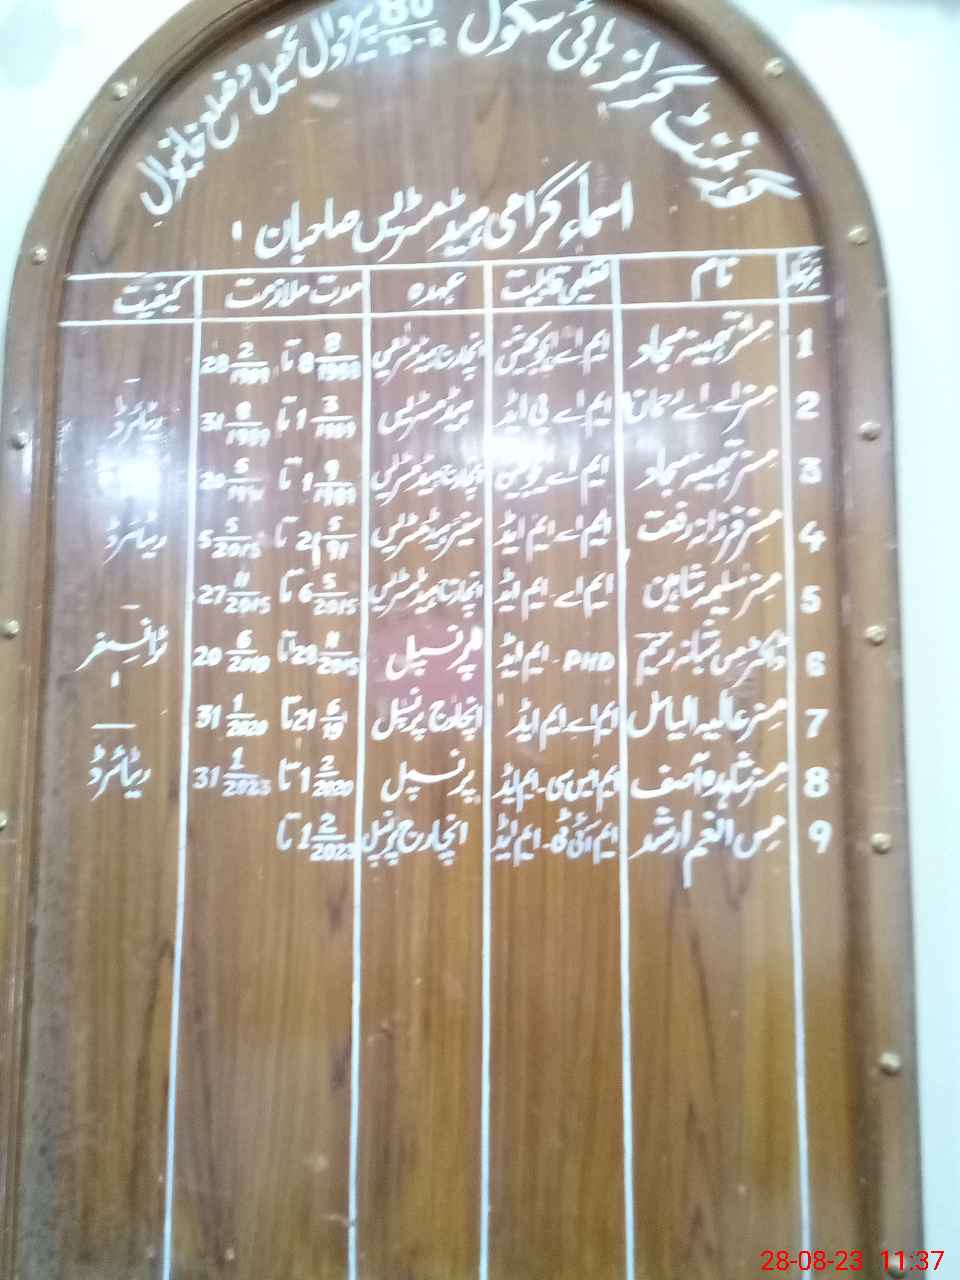 گورنمنٹ گرلز ہائی سکول 80/10-R پیرووال تحصیل و ضلع خانیوال
اسماء گرامی ہیڈ مسٹریس صاحبان
نمبر شمار نام تعلیمی قابلیت عہدہ مدت ملازمت کیفیت
1 مسز تہمینہ سجاد ایم اے ایجوکیشن انچارج ہیڈ مسٹریس 8/1988 تا 28 2/1989 _
2 ایم اے بی ایڈ ہیڈ مسٹریس 1 3/1989 تا 31 8/1989 ریٹائرڈ
3 مسز تہمینہ سجاد ایم اے ایجوکیشن انچارج ہیڈ مسٹریس 1 9/1989 تا 20 5
4 مسز فرزانہ رفعت ایم اے ایم ایڈ سینئر ہیڈ مسٹریس 21 5/91 تا 5 5/2015 ریٹائرڈ
5 مسز سلیمہ شاہین ایم اے۔ ایم ایڈ انچارج ہیڈ مسٹریس 6 5/2015 تا 27 11/2015 _
6 ڈاکٹر مس شبانہ رحیم PHD۔ ایم ایڈ پرنسپل 28 11/2015 تا 20 6 ٹرانسفر
7 مسز عالیہ الیاس ایم اے ایم ایڈ انچارج پرنسپل 21 6/19 تا 31 1/2020 _
8 مسز شاہدہ آصف ایم ایس سی۔ ایم ایڈ پرنسپل 1 2/2020 تا 31 1/2023 ریٹائرڈ
9 مس انعم ارشد ایم آئی ٹی۔ ایم ایڈ انچارج پرنسپل 1 2/2023 تا
28-08-23 11:37